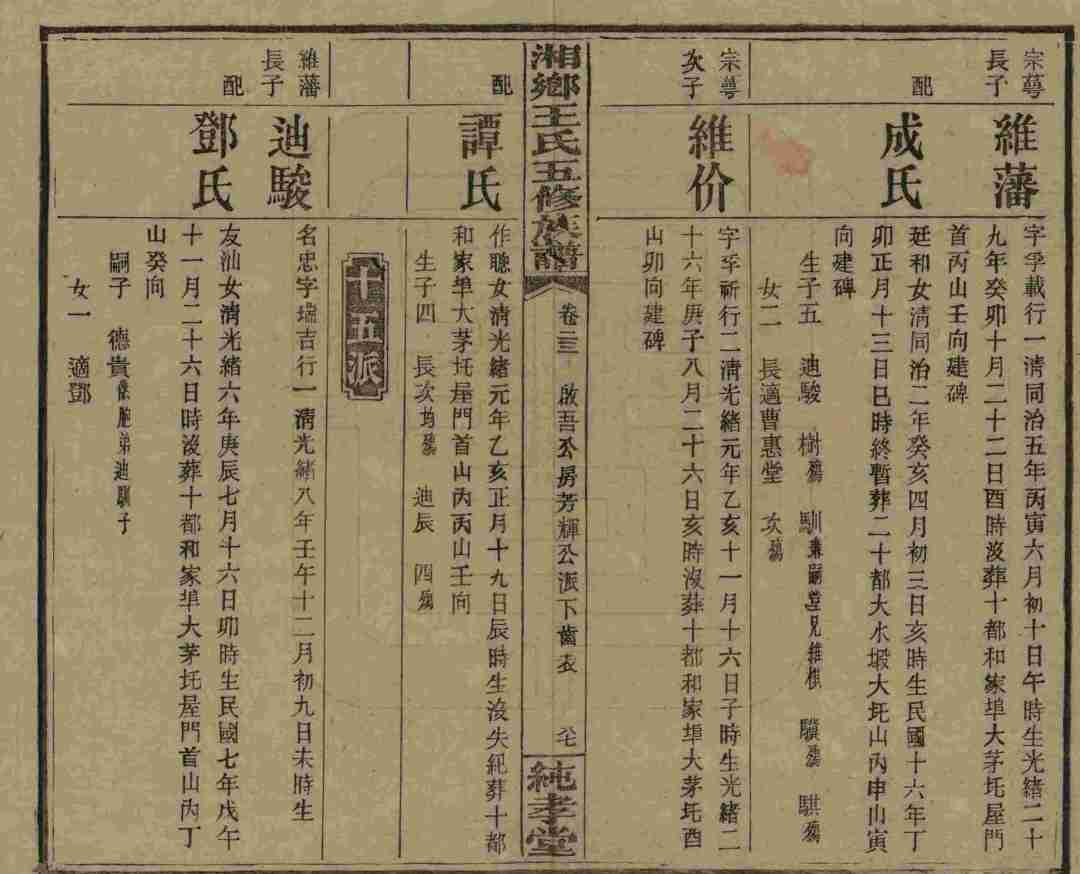 宗萼
長子
維藩
字孚載行一清同治五年丙寅六月初十日午時生光緒二十
九年癸卯十月二十二日酉時沒葬十都和家埠大茅圫屋門
首丙山壬向建碑
配
成氏
廷和女清同治二年癸亥四月初三日亥時生民國十六年丁
卯正月十三日巳時終暫葬二十都大水塅大圫山丙申山寅
向建碑
生子五 迪駿 樹殤 馴兼嗣堂兄維棋 驥殤 騏殤
女二 長適曹惠堂 次殤
宗萼
次子
維价
字孚祈行二清光緒元年乙亥十一月十六日子時生光緒二
十六年庚子八月二十六日亥時沒葬十都和家埠大茅圫酉
山卯向建碑
湘鄉王氏五修族譜
卷三 啟吾公房芳輝公派下齒表 六七
純孝堂
配
譚氏
作聰女清光緒元年乙亥正月十九日辰時生沒失紀葬十都
和家埠大茅圫屋門首山丙丙山壬向
生子四 長次均殤 迪辰 四殤
十五派
維藩
長子
迪駿
名忠字瑞吉行一清光緒八年壬午十二月初九日未時生
配
鄧氏
友汕女清光緒六年庚辰七月十六日卯時生民國七年戊午
十一月二十六日時沒葬十都和家埠大茅圫屋門首山內丁
山癸向
嗣子 德貴係胞弟迪馴子
女一 適鄧